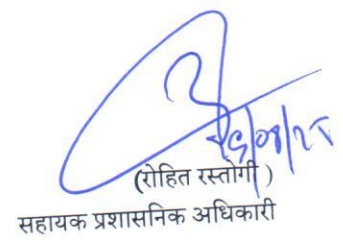 (रोहित रस्तोगी )
सहायक प्रशासनिक अधिकारी